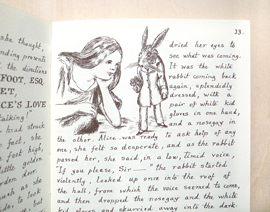 she thought,
nding presents
the directions
FOOT, ESQ.
ET,
CE'S LOVE
talking"
head struck
feet high,
little golden
23.
dried her eyes to
see what was coming.
It was the white
rabbit coming back
again, splendidly
dressed, with a
pair of white kid
gloves in one hand,
and a nosegay in
the other. Alice was ready to ask help of any
one, she felt so desperate, and as the rabbit
passed her, she said, in a low, timid voice,
"If you please, Sir——" the rabbit started
violently, looked up once into the roof of
the hall, from which the voice seemed to come,
and then dropped the nosegay and the white
kid gloves and skurried away into the dark